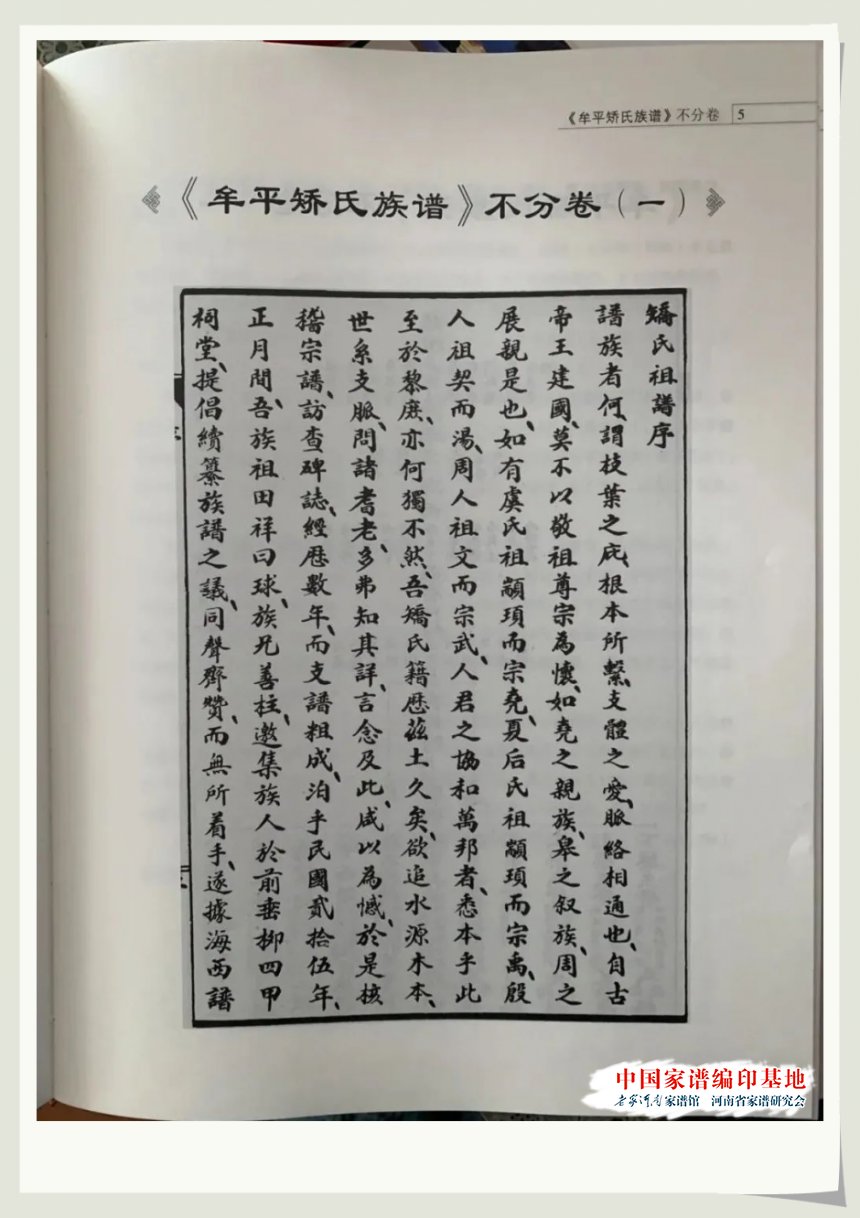 《牟平矫氏族谱》不分卷 5
《牟平矫氏族谱》不分卷（一）
矯氏祖譜序
譜族者何、謂枝葉之庇、根本所繫、支體之愛、脈絡相通也、自古
帝王建國、莫不以敬祖尊宗為懷、如堯之親族、皋之叙族、周之
展親是也、如有虞氏祖顓頊而宗堯、夏后氏祖顓頊而宗禹、殷
人祖契而湯、周人祖文而宗武、人君之協和萬邦者、悉本乎此
至於黎庶、亦何獨不然、吾矯氏籍歷茲土久矣、欲追水源木本、
世系支脈、問諸耆老、多弗知其詳、言念及此、咸以為憾、於是核
稽宗譜、訪查碑誌、經歷數年、而支譜粗成、洎乎民國貳拾伍年、
正月間、吾族祖田祥曰球、族兄善柱、邀集族人於前垂柳四甲
祠堂、提倡續纂族譜之議、同聲齊贊、而無所着手、遂據海西譜
中国家谱编印基地
家谱馆 河南省家谱研究会